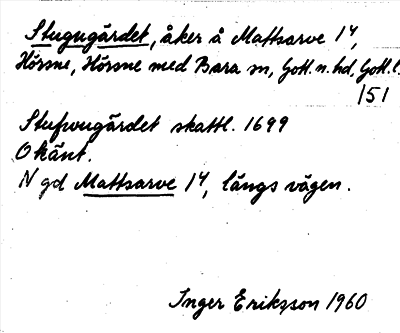 Stugugärdet, åker å Mattsarve 1⁴,
Hörsne, Hörsne med Bara sn, Gotl. n. hd, Gotl. l.
151
Stufvugärdet skattl. 1699
Okänt.
N gd Mattsarve 1⁴, längs vägen.
Inger Eriksson 1960